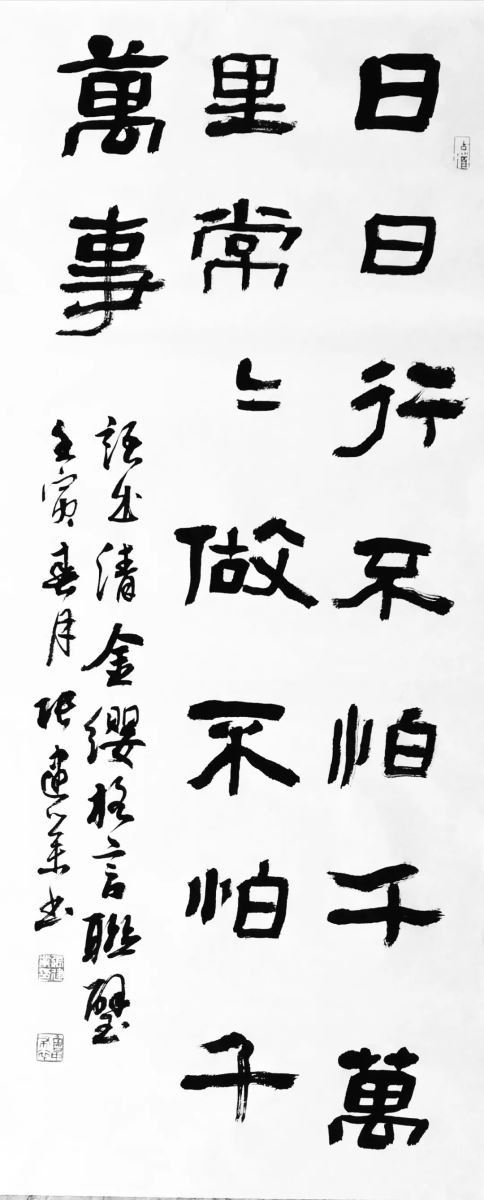 日日行不怕千萬
里常〻做不怕千
萬事
語出清金纓格言聯璧
壬寅春月張建業書